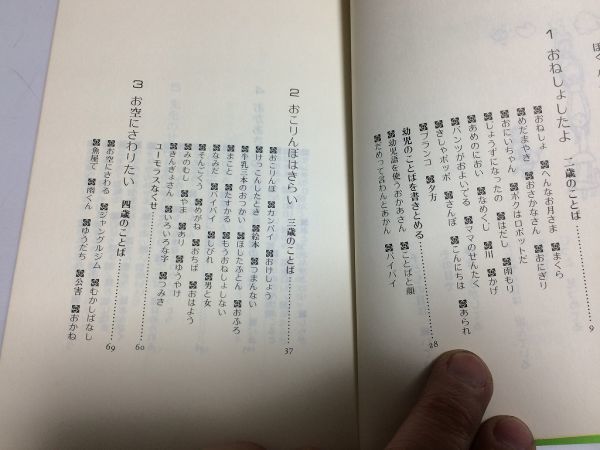 1 おねしょしたよ 二歳のことば 9
おねしょ へんなお月さま まくら
めだまやき おさかなさん おにぎり
おにいちゃん ボクはロボットだ
しょうずになったの はだし 雨もり
あめのにおい なめくじ 川 かげ
パンツがおよいでる ママのせんたく
きしゃポッポ さんぽ こんにちは あられ
ブランコ 夕方
幼児のことばを書きとめる 28
幼児語を使うおかあさん ことばと顔
だめって言わんとあかん バイバイ
2 おこりんぼはきらい 三歳のことば 37
おこりんぼ カンパイ おけしょう
けっこんしたとき 絵本 つまんない
牛乳三本のおつかい ほしたふとん おふろ
まこと たすかる もうおねしょしない
なみだ バイバイ しびれ 男と女
そんごくう めがね おちば おはよう
みのむし やま あり ゆうやけ
きんぎょさん いろいろな字 つみき
ユーモラスなくせ 60
3 お空にさわりたい 四歳のことば 69
お空にさわる ジャングルジム むかしばなし
魚屋で 雨くん ゆうだち 公害 おかね